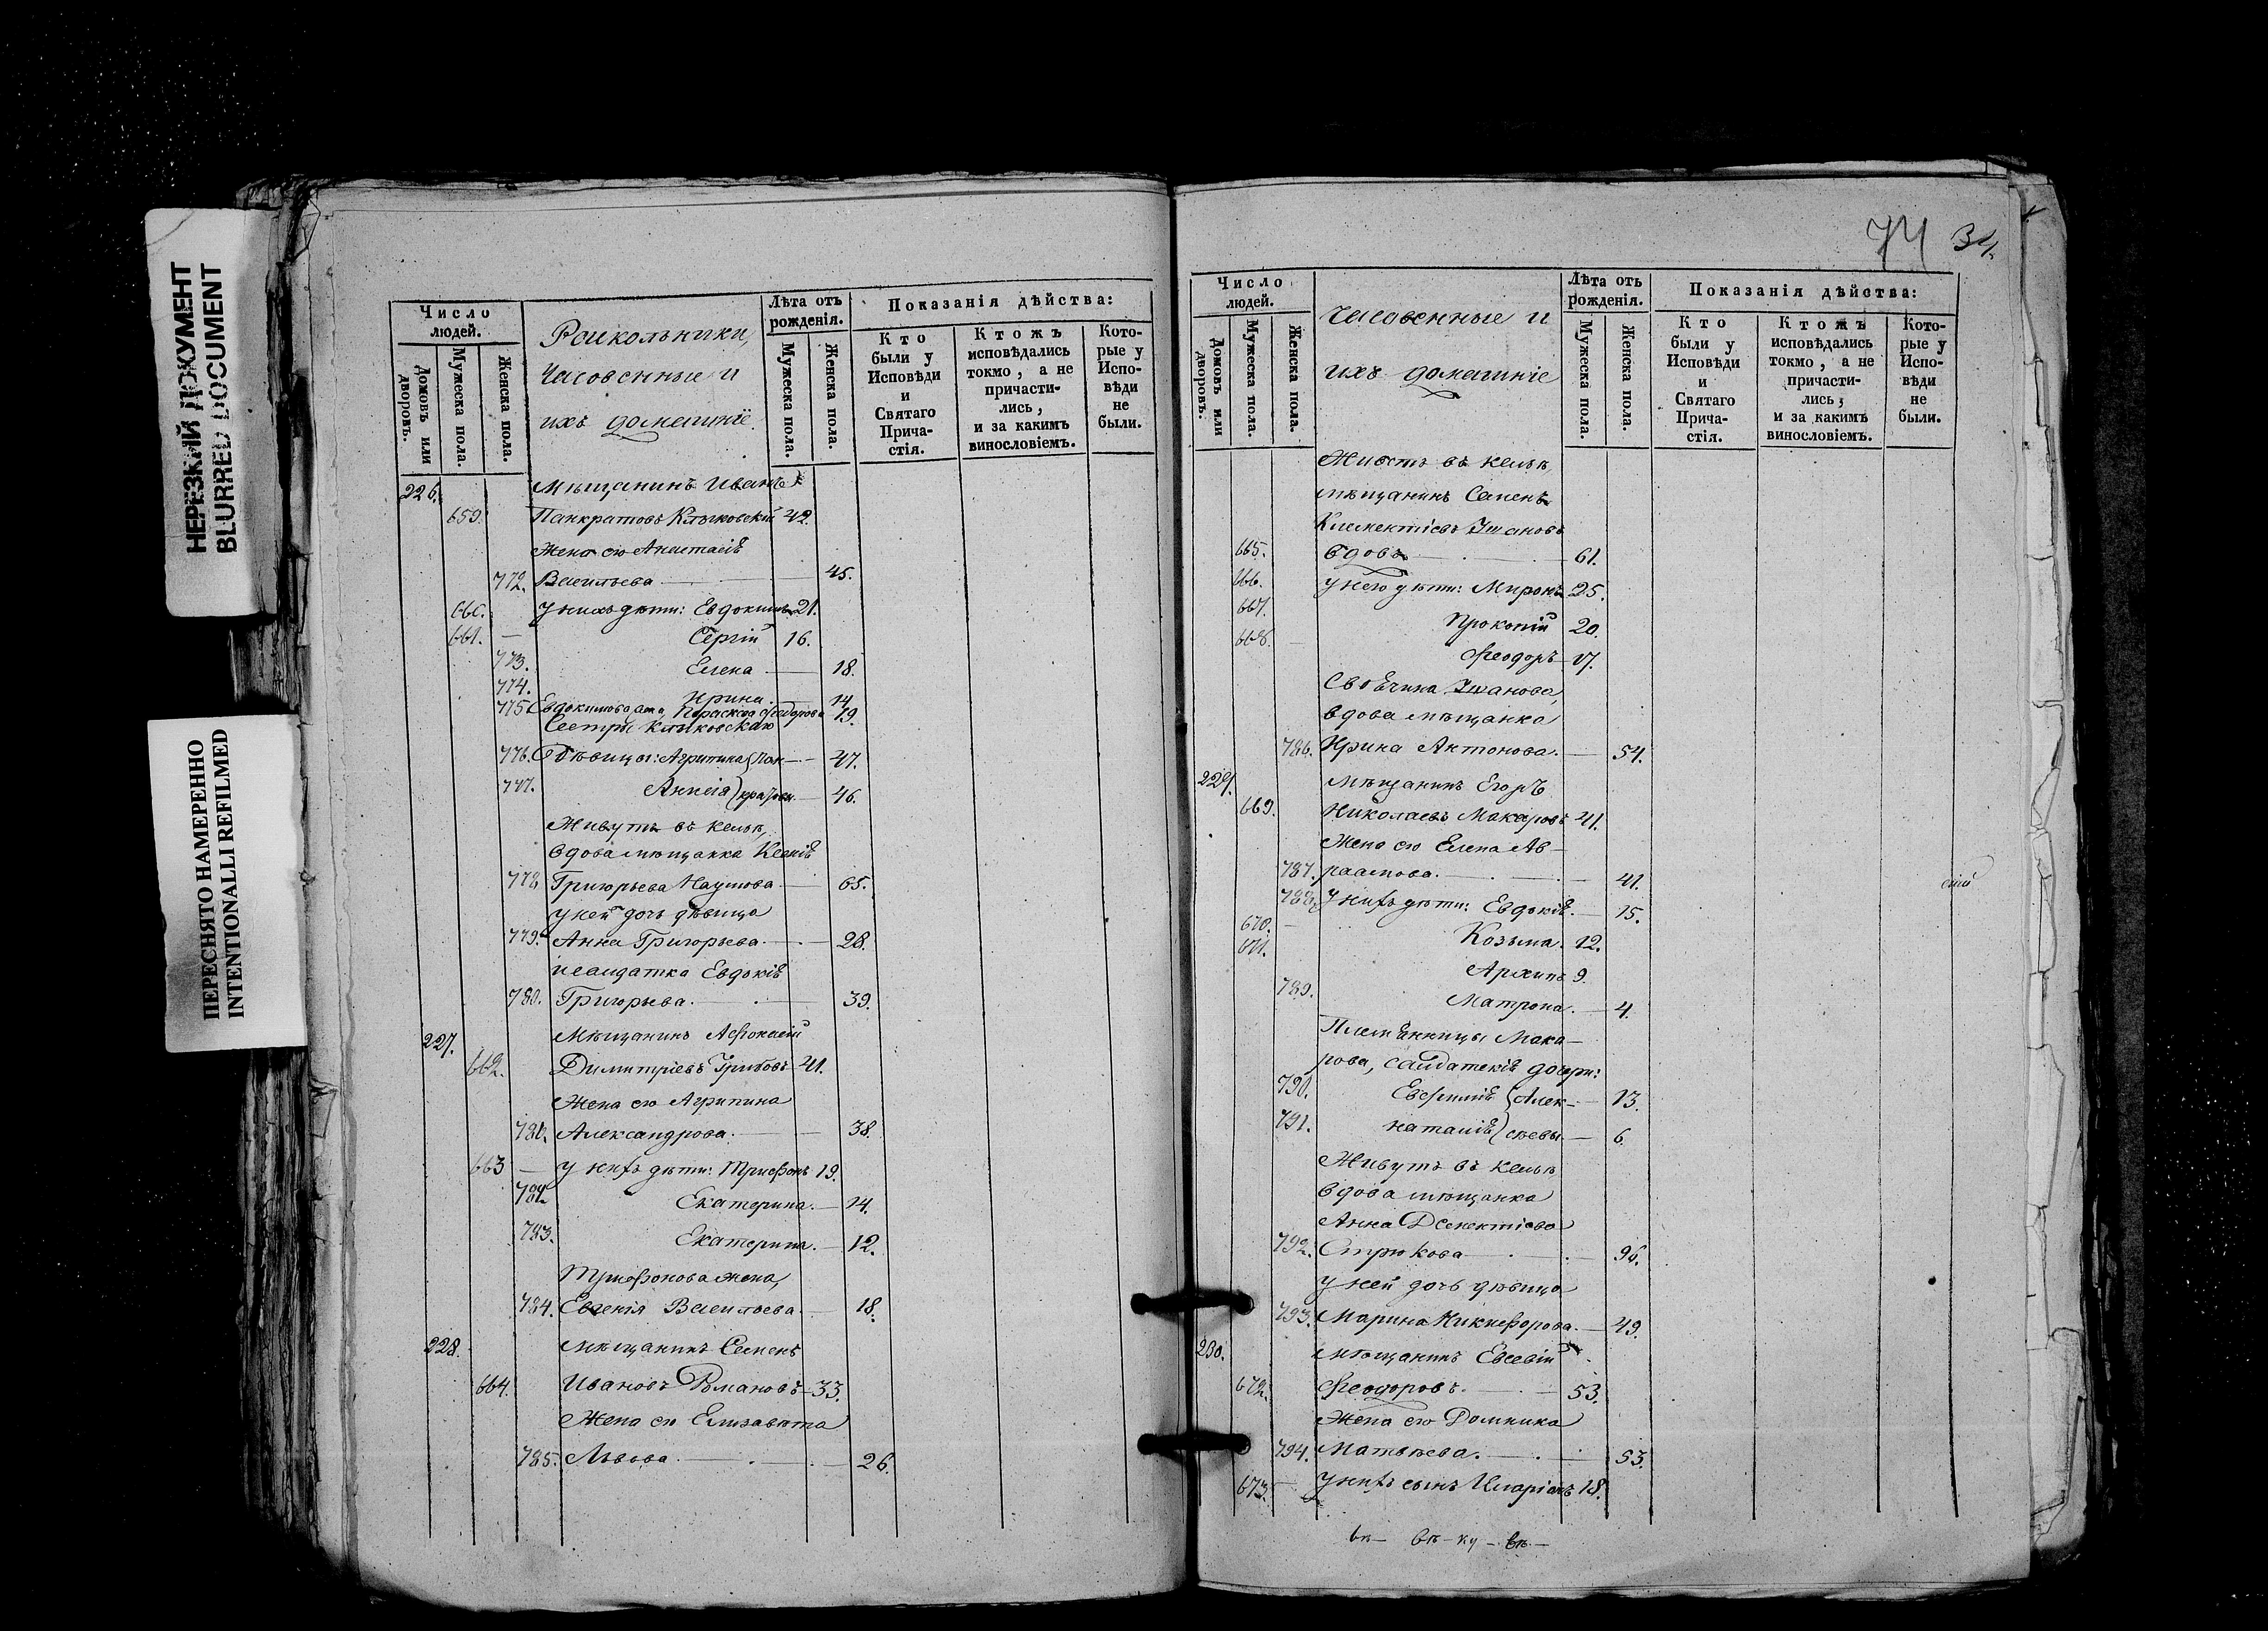 НЕРЕЗКИЙ ДОКУМЕНТ
BLURRED DOCUMENT
ПЕРЕСНЯТО НАМЕРЕННО
INTENTIONALLI REFILMED
Число людей.
Домовъ или дворовъ.
Мужеска пола.
Женска пола.
Раскольники,
Часовенные и
ихъ домашніе.
Лѣта отъ рожденія.
Мужеска пола.
Женска пола.
Показанія дѣйства:
Кто были у Исповѣди и Святаго Прича-стія.
Ктожъ исповѣдались токмо, а не причасти-лись, и за какимъ винословіемъ.
Кото-рые у Испо-вѣди не были.
226. Мѣщанинъ Иванъ
659. Панкратовъ Клыковскій 42.
Жена его Анастасія
772. Васильева 45.
660. У нихъ дѣти: Евдокимъ 21.
661. Сергій 16.
773. Елена 18.
774. Ирина 14
775. Евдокимова жена, Параскева Феодорова 19.
Сестры Клыковскаго
776. Дѣвицы: Агрипина Пан- 47.
777. Анисія кратовы 46.
Живутъ въ кельѣ,
вдова мѣщанка Ксенія
778. Григорьева Наумова 65.
у ней дочь дѣвица
779. Анна Григорьева 28.
исолдатка Евдокія
780. Григорьева 39.
227. Мѣщанинъ Афонасій
662. Димитріевъ Грибовъ 41.
Жена его Агрипина
781. Александрова 38.
663 У нихъ дѣти: Трифонъ 19.
782. Екатерина 14.
783. Екатерина 12.
Трифонова жена,
784. Евгенія Васильева 18.
228. Мѣщанинъ Семенъ
664. Ивановъ Романовъ 33.
Жена его Елизавета
785. Львова 26.
74 34.
Число людей.
Домовъ или дворовъ.
Мужеска пола.
Женска пола.
Часовенные и
ихъ домашніе
Лѣта отъ рожденія.
Мужеска пола.
Женска пола.
Показанія дѣйства:
Кто были у Исповѣди и Святаго Прича-стія.
Ктожъ исповѣдались токмо, а не причасти-лись, и за какимъ винословіемъ.
Кото-рые у Испо-вѣди не были.
Живетъ въ кельѣ
мѣщанинъ Семенъ
Климентіевъ
665. вдовъ 61.
666. у него дѣти: Миронъ 25.
667. Прокопій 20.
668. Феодоръ 17.
вдова мѣщанка
786. Ирина Антонова. 54.
229. Мѣщанинъ Егоръ
669. Николаевъ Макаровъ 41.
Жена его Елена Ав-
787. раамова. 41.
788. У нихъ дѣти: Евдокія. 15.
670. Козьма. 12.
671. Архипъ 9.
789. Матрона. 4.
Племянницы Мака-
рова, салдатскія дочери:
790. Евфимія Алек- 13.
791. наталія сѣевы 6.
Живутъ въ кельѣ
вдова мѣщанка
Анна
792. Стрюкова 96.
у ней дочь дѣвица
793. Марина Никифорова. 49.
230. Мѣщанинъ Евсевій
672. Феодоровъ. 53.
Жена его Домника
794. Матвѣева. 53.
673. У нихъ сынъ Иларіонъ 18.